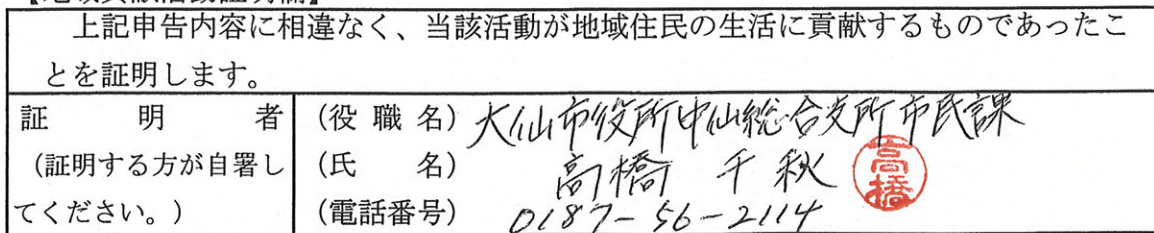 上記申告内容に相違なく、当該活動が地域住民の生活に貢献するものであったこ
とを証明します。
証明者
(証明する方が自署し
てください。)
(役職名) 大仙市役所中仙総合支所市民課
(氏名) 高橋 千秋 高橋
(電話番号) 0187-56-2114